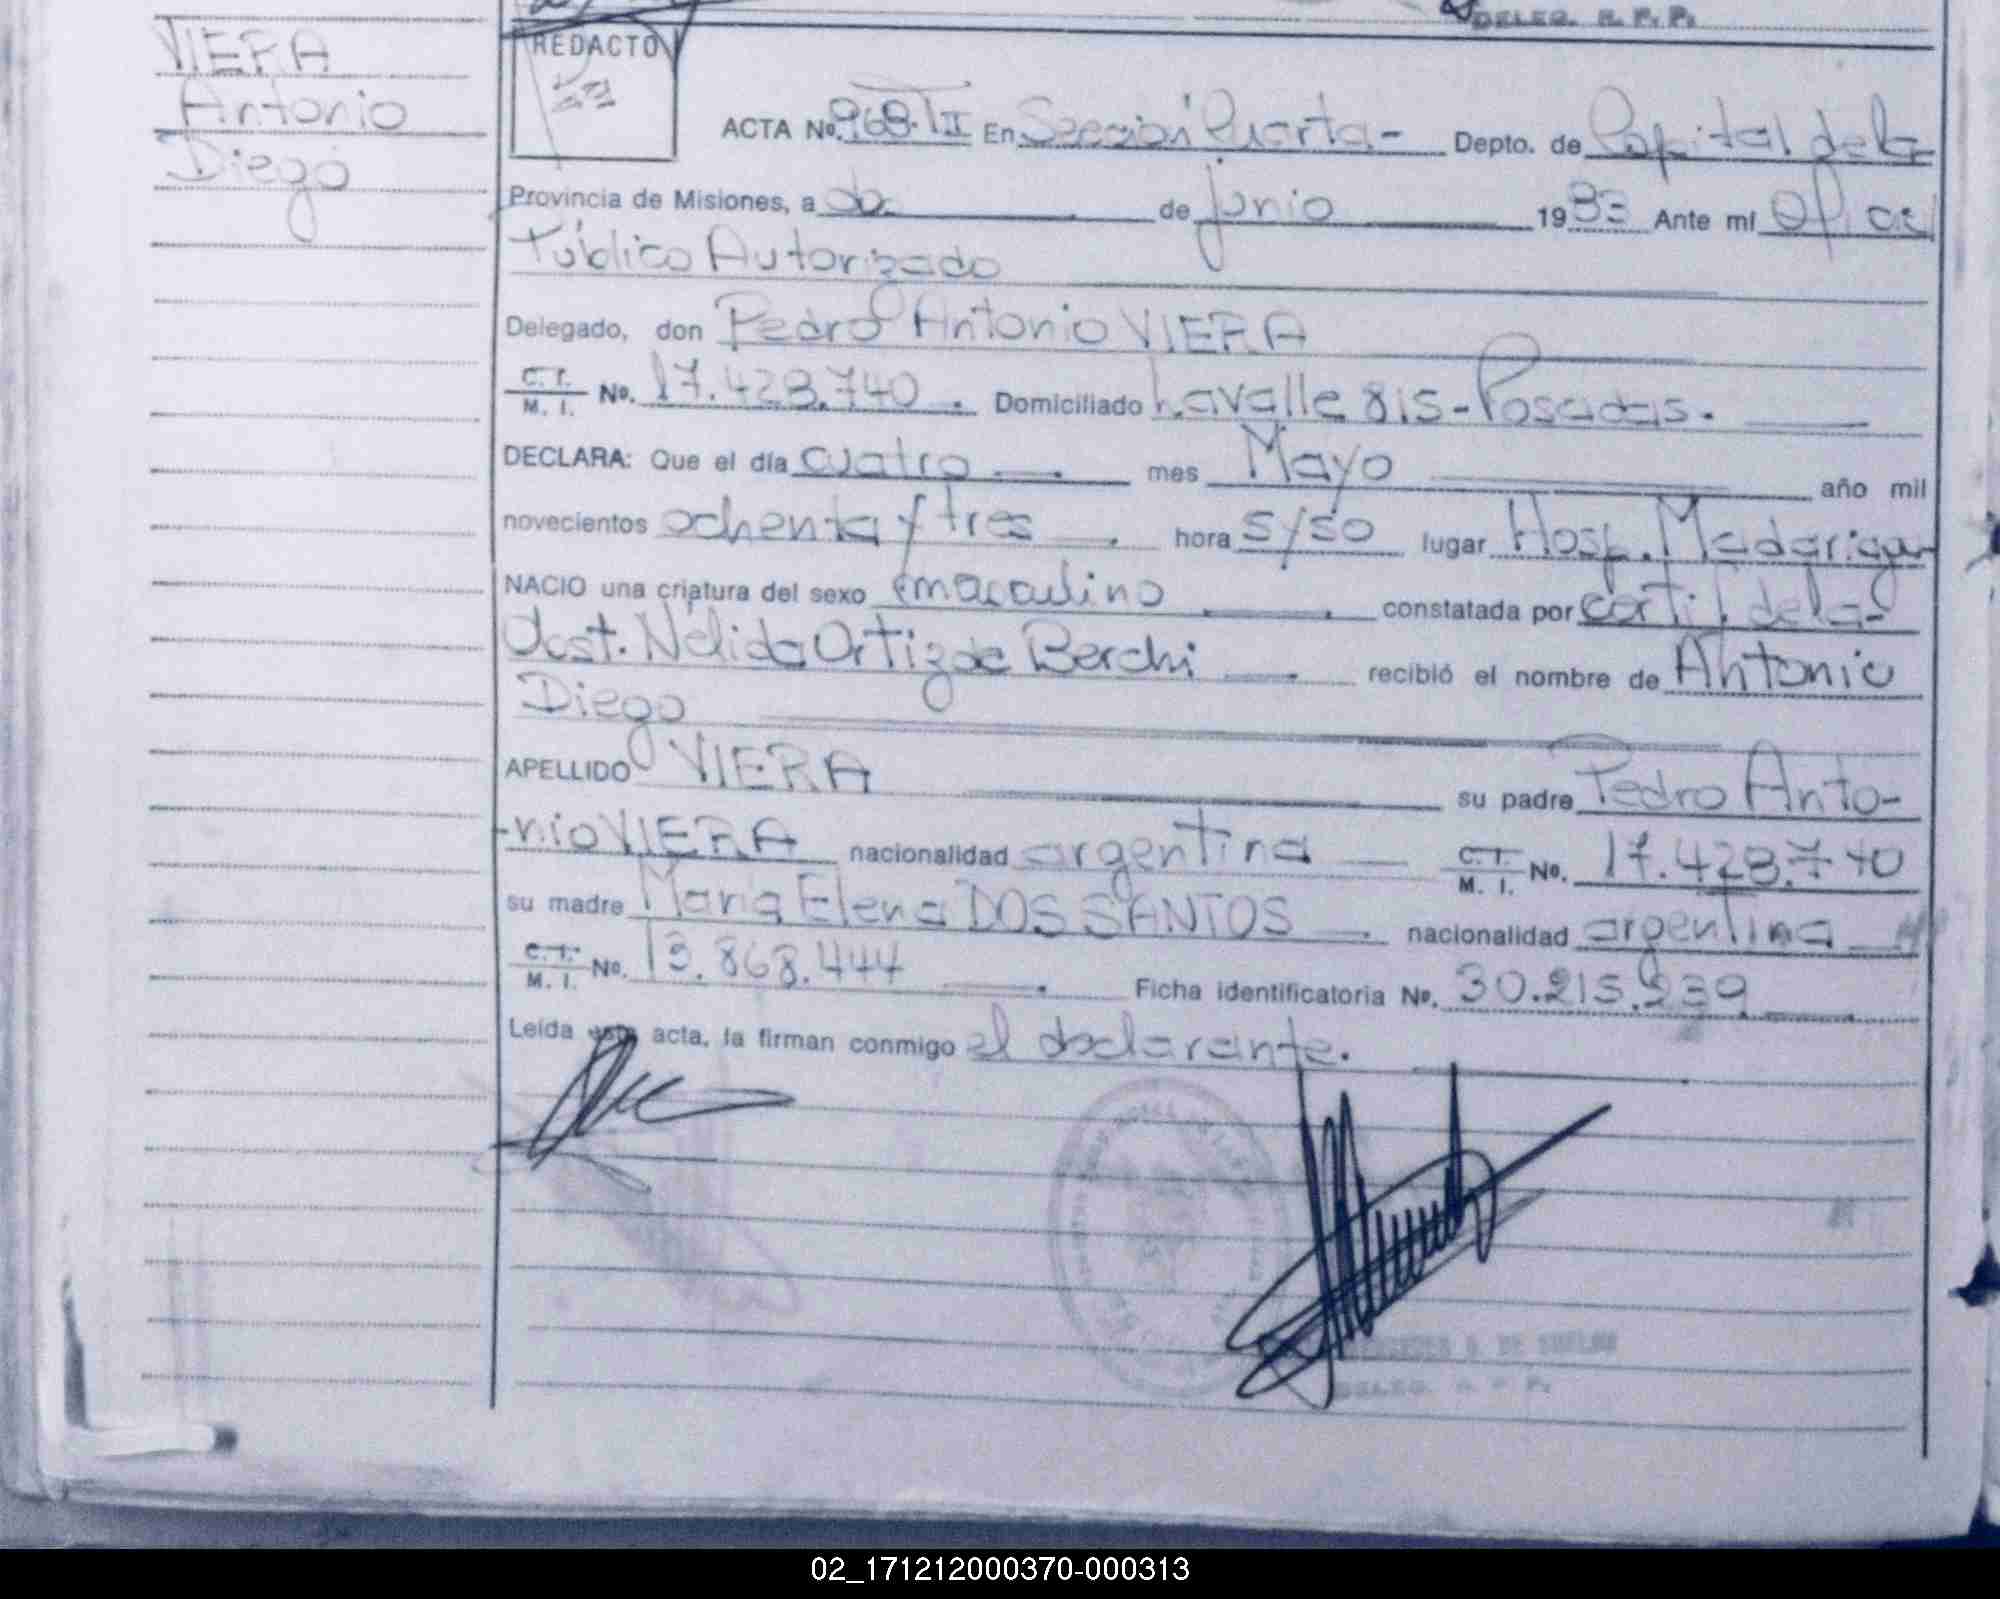 DELEG. R. P. P.
VIERA
Antonio
Diego
REDACTO
ACTA No. 968-TII En Sección Cuarta- Depto. de Capital de la
Provincia de Misiones, a dos de junio 1983 Ante mí Oficial
Público Autorizado
Delegado, don Pedro Antonio VIERA
C. I. M. I. No. 17.428.740. Domiciliado Lavalle 815-Posadas.
DECLARA: Que el día cuatro mes Mayo año mil
novecientos ochenta y tres. hora 5/50 lugar Hosp. Madariaga
NACIO una criatura del sexo masculino constatada por certif. de la-
Obst. Nélida Ortiz de Berchi recibió el nombre de Antonio
Diego
APELLIDO VIERA su padre Pedro Anto-
-nio VIERA nacionalidad argentina C. I. M. I. No. 17.428.740
su madre Maria Elena DOS SANTOS. nacionalidad argentina
C. I. M. I. No. 13.868.444 Ficha identificatoria No. 30.215.939
Leída esta acta, la firman conmigo el declarante.
DELEG. R. P. P.
02_171212000370-000313